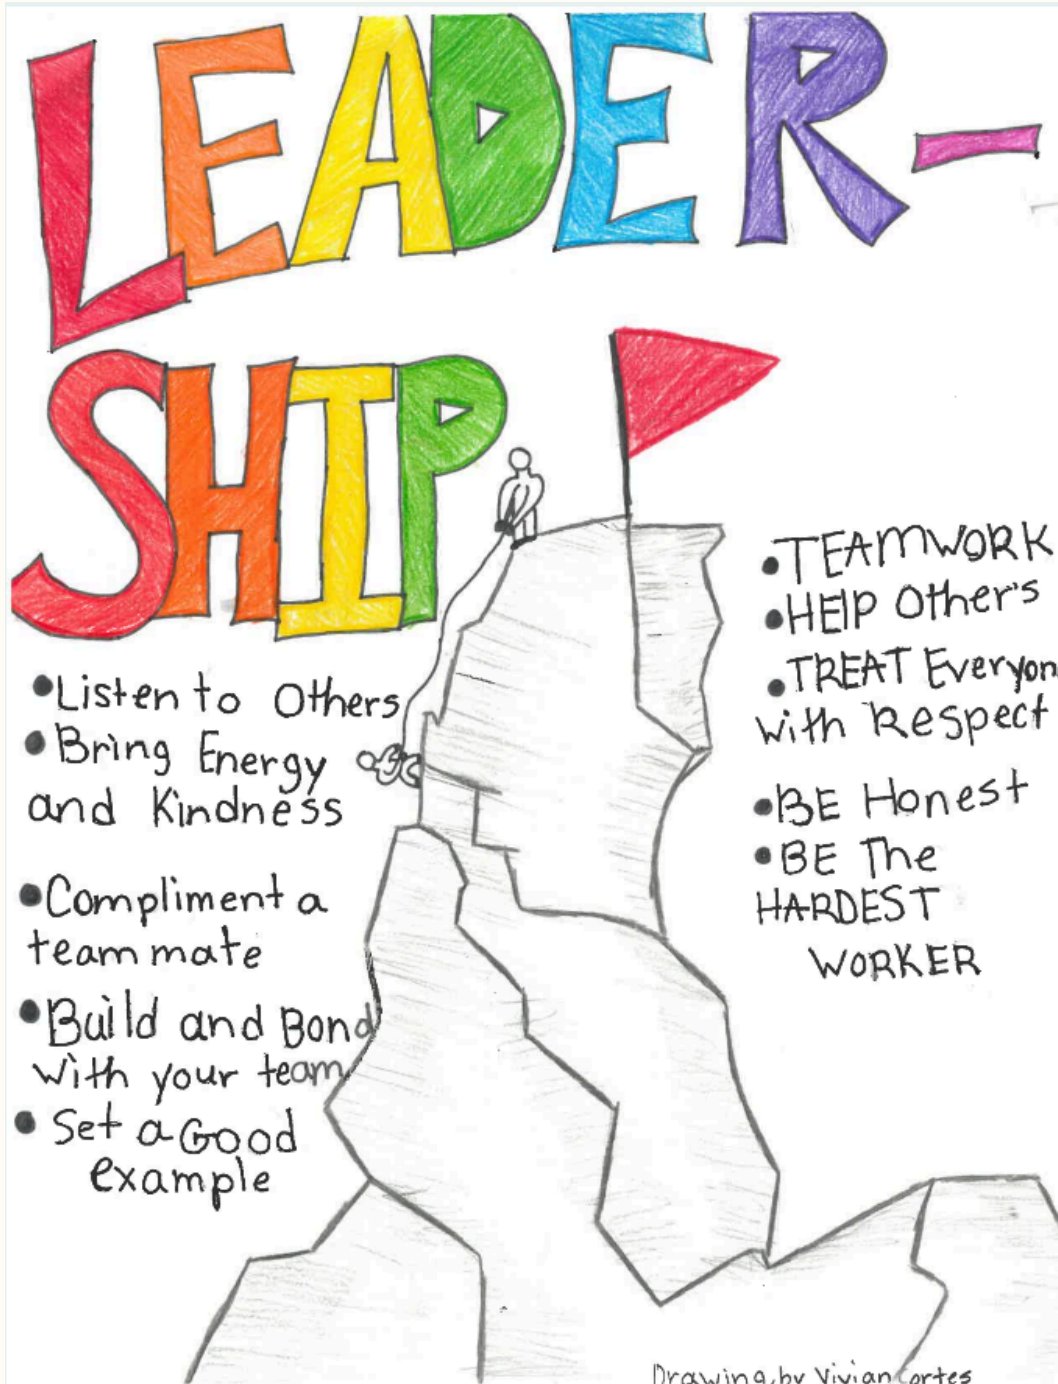 LEADER-
SHIP
•Listen to Others
•Bring Energy
and Kindness
•Compliment a
team mate
•Build and Bond
with your team
•Set a Good
example
•TEAMWORK
•HELP Other's
•TREAT Everyon
with Respect
•BE Honest
•BE The
HARDEST
WORKER
Drawing by Vivian Cortes